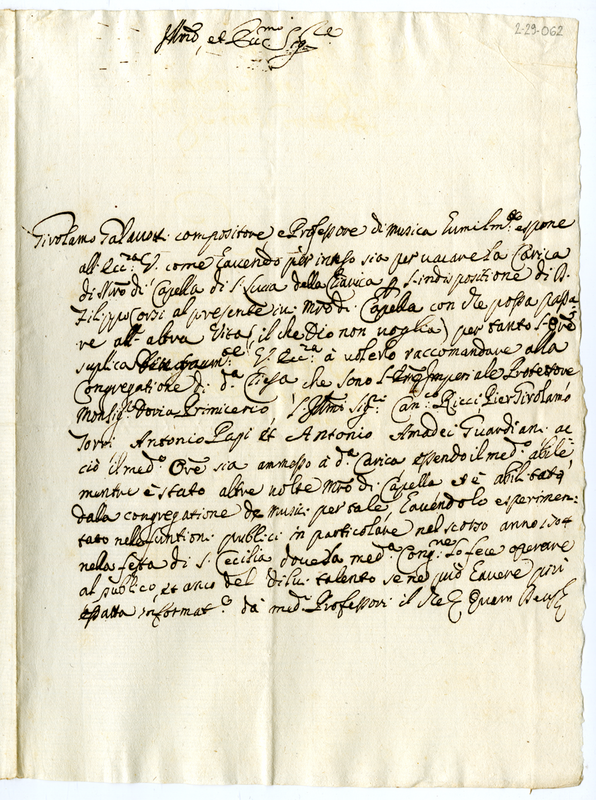 2-29-062
Illmo, et Eccmo Sigre
Girolamo Galavott: compositore e Professore di Musica humilmte espone
all'Ecc:za V. come havendo per inteso sia per vacare la Carica
di Mro di Capella di S. Lucia della Chiavica p l'indispositione di D.
Filippo Cordi al presente ivi Mro di Capella con che possa passa
re all'altra Vita (il che Dio non voglia) per tanto l'Ore
suplica V. Ecc:za à volerlo raccomandare alla
Congregatione di d:a Chiesa che sono l' Imperiale Protettore
Monsigr Doria Primicerio, l'Illmi Sigri Can:co Ricci Pier Girolamo
Torri Antonio Papi et Antonio Amadei Guardiani ac
ciò il med:o Ore sia ammesso à d:a Carica essendo il med:o abile
mentre è stato altre volte Mro di Capella et è abilitato
dalla congregatione de Musici per tale, havendolo esperimen:
tato nelle funtioni publici in particolare nel scorso anno 1704
nella festa di S. Cecilia dove la med:a Cong:ne lo fece operare
al publico et anco del di lui talento se ne può havere più
esatta informat:e da med:i Professori il che Quam Deus